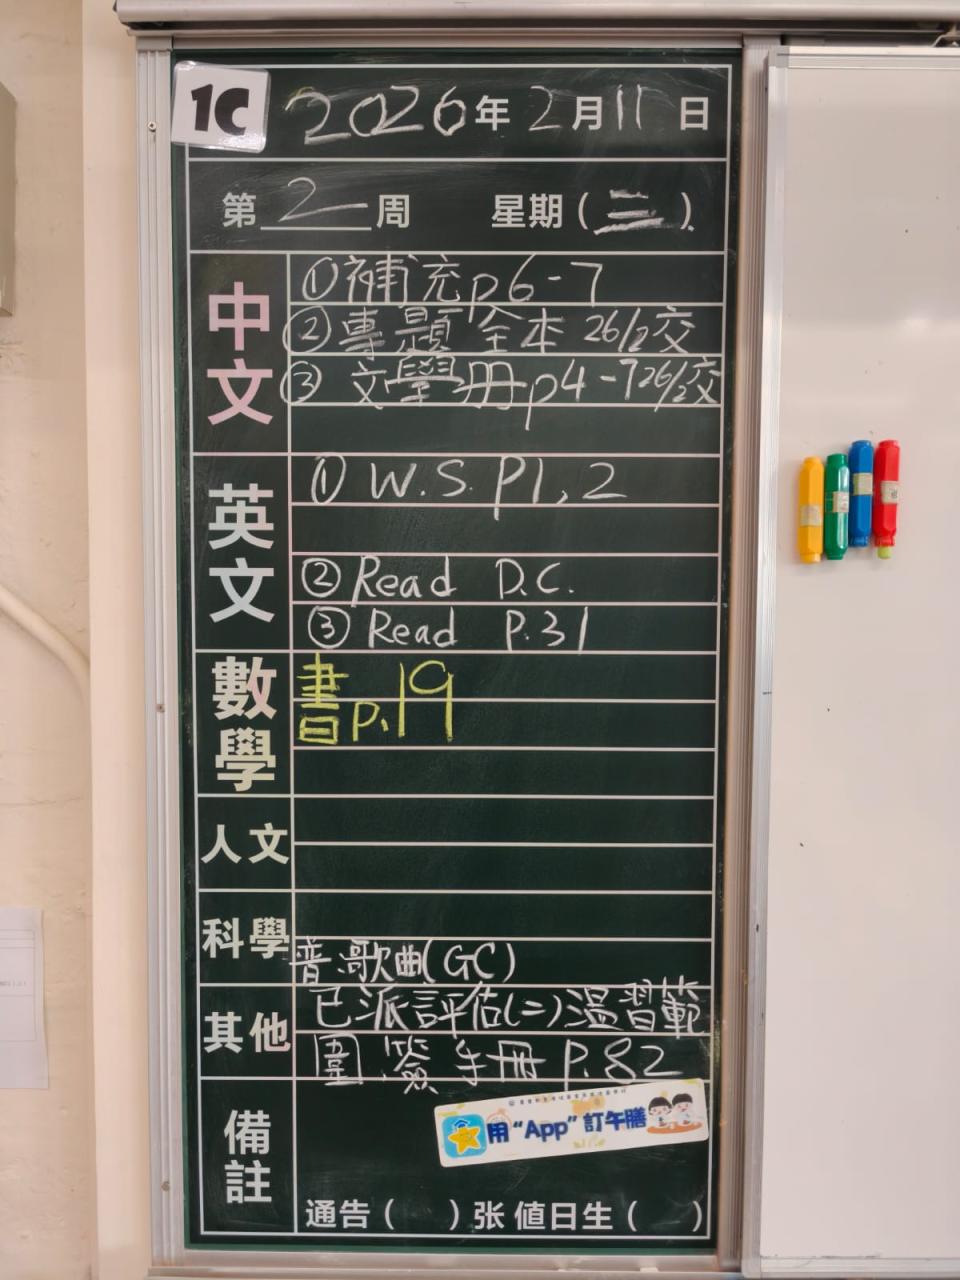 1C 2026年2月11日
第2周 星期(三)
中文
①補充p6-7
②專題全本 26/2交
③文學册p4-7 26/2交
英文
① W.S. P1,2
② Read D.C.
③ Read P.31
數學
書p.19
人文
科學
音:歌曲(GC)
其他
已派評估(二)溫習範
圍,簽手冊P.82
備註
用“App”訂午膳
通告( )张 值日生( )